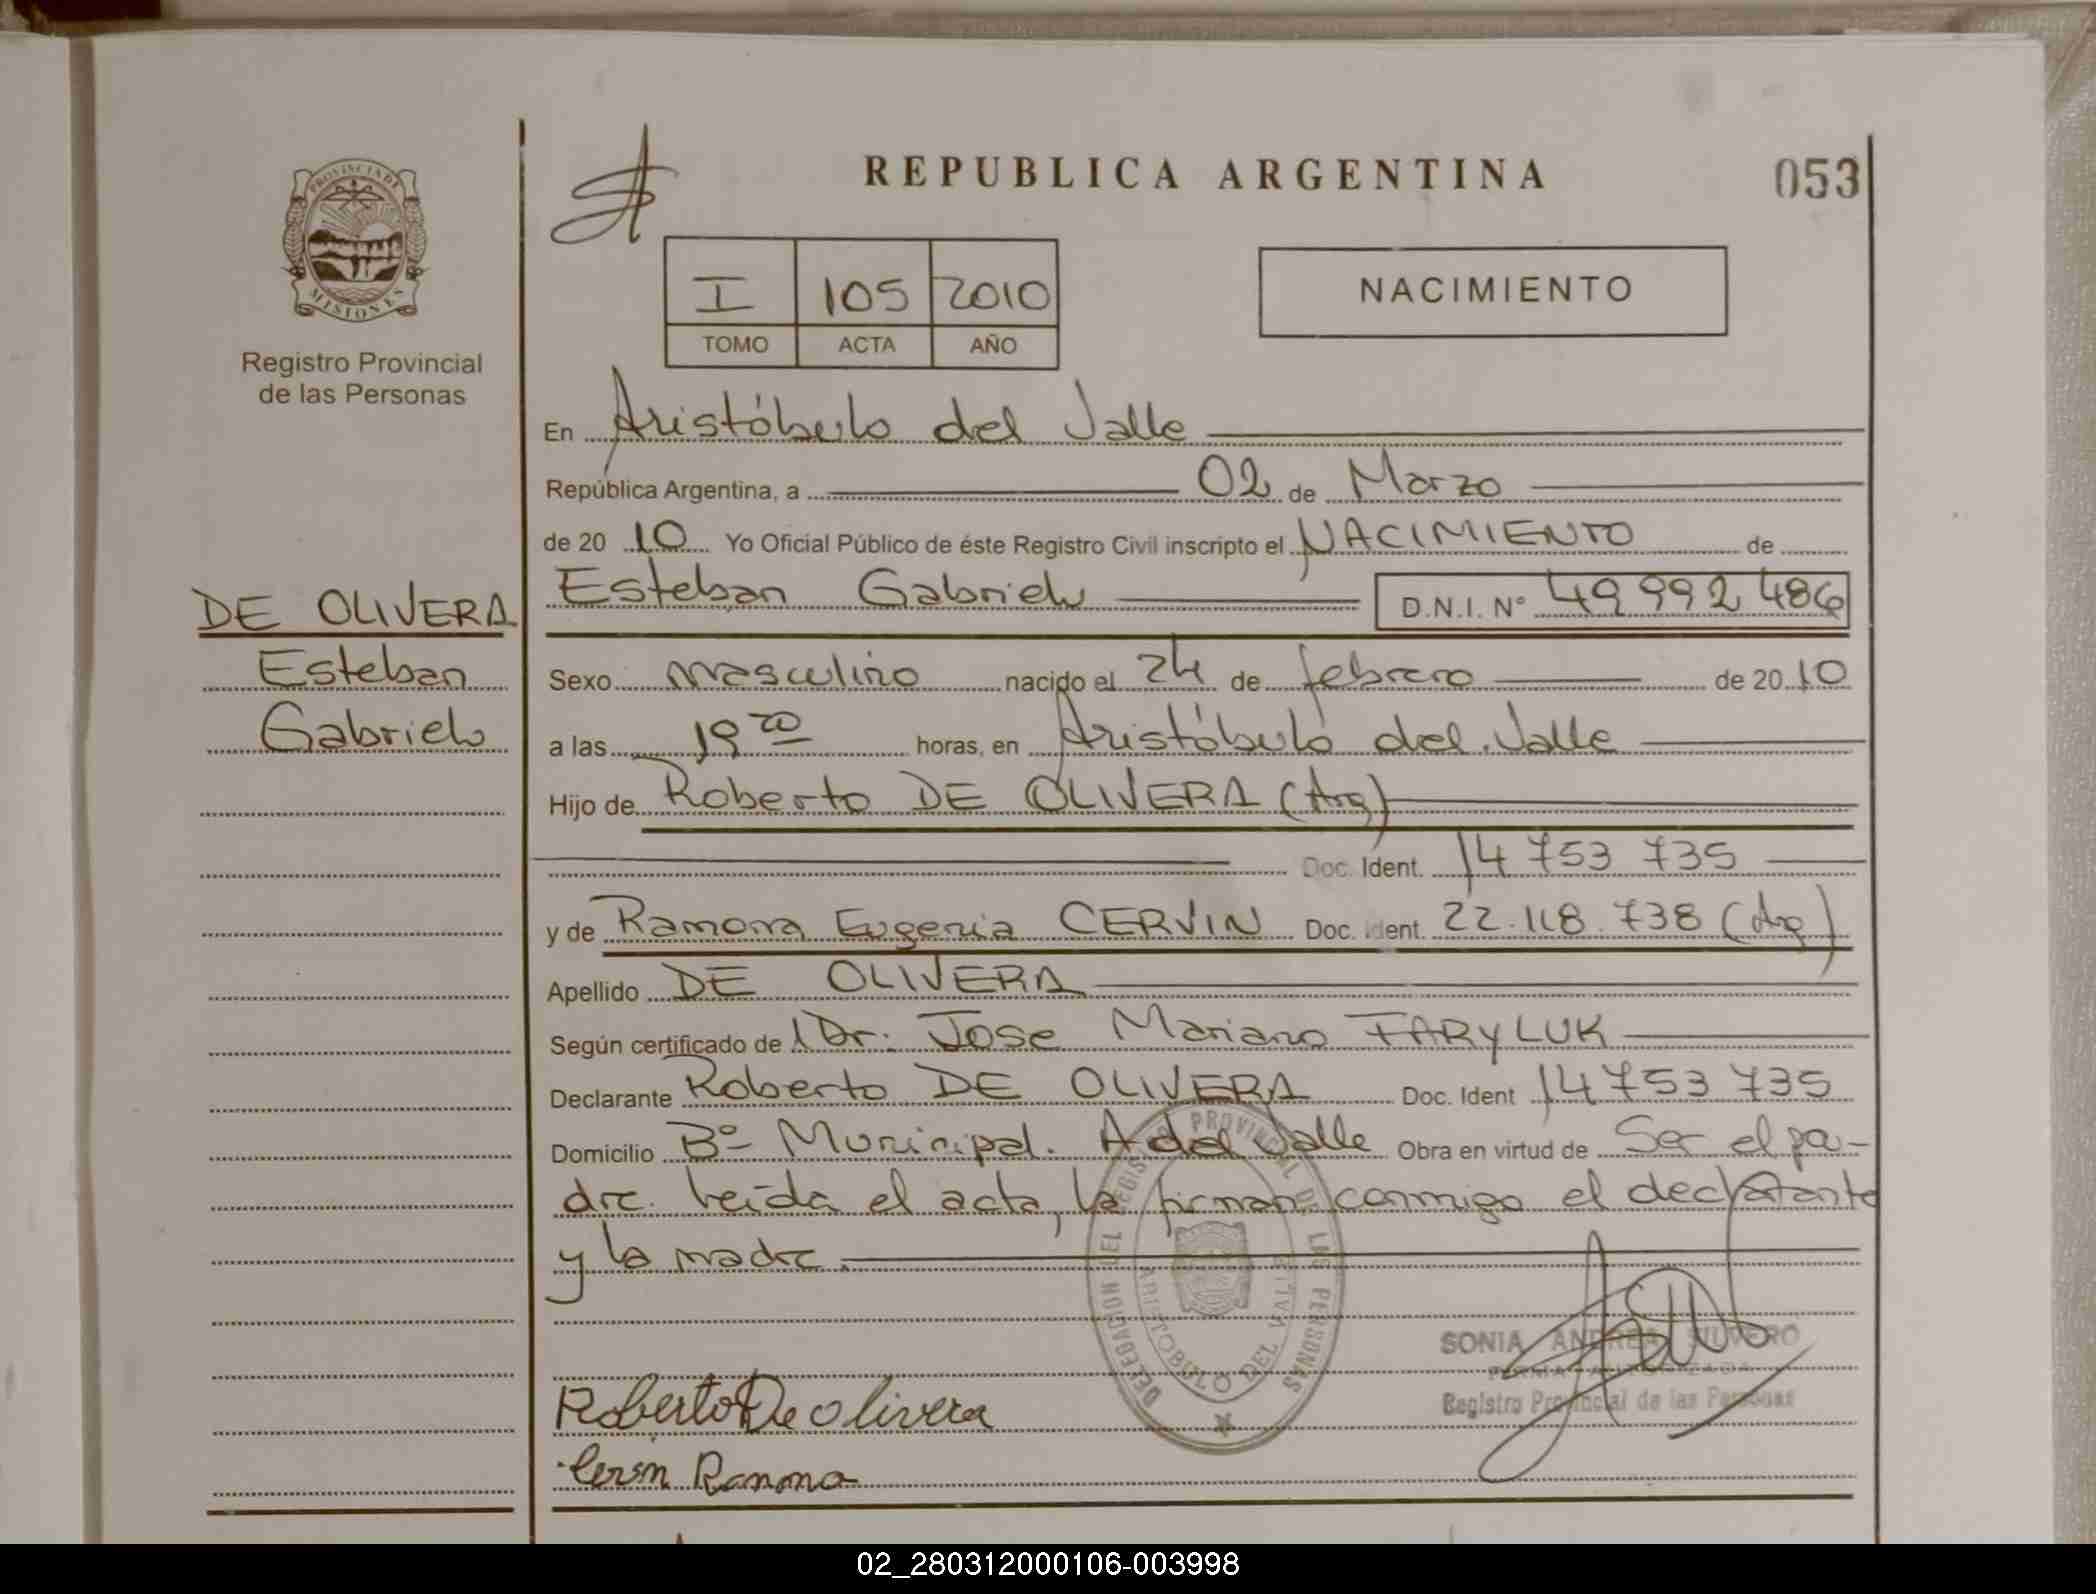 REPUBLICA ARGENTINA
053
PROVINCIA DE
MISIONES
Registro Provincial
de las Personas
I 105 2010
TOMO ACTA AÑO
NACIMIENTO
En Aristóbulo del Valle
República Argentina, a 02 de Marzo
de 20 10 Yo Oficial Público de éste Registro Civil inscripto el NACIMIENTO de
DE OLIVERA
Esteban
Gabriel
Esteban Gabriel D.N.I. N° 49 992 486
Sexo masculino nacido el 24 de febrero de 20 10
a las 19 horas, en Aristóbulo del Valle
Hijo de Roberto DE OLIVERA (Arg)
Doc. Ident. 14 753 735
y de Ramona Eugenia CERVIN Doc. Ident. 22.118.738 (Arg)
Apellido DE OLIVERA
Según certificado de Dr. Jose Mariano FARYLUK
Declarante Roberto DE OLIVERA Doc. Ident 14 753 735
Domicilio B° Municipal. A del Valle Obra en virtud de Ser el pa-
dre. Leída el acta, la firman conmigo el declarante
y la madre.
DELEGACION DEL REGISTRO PROVINCIAL DE LAS PERSONAS
ARISTOBULO DEL VALLE
SONIA ANDREA SILVERO
FIRMA AUTORIZADA
Registro Provincial de las Personas
Roberto De olivera
Cervin Ramona
02_280312000106-003998